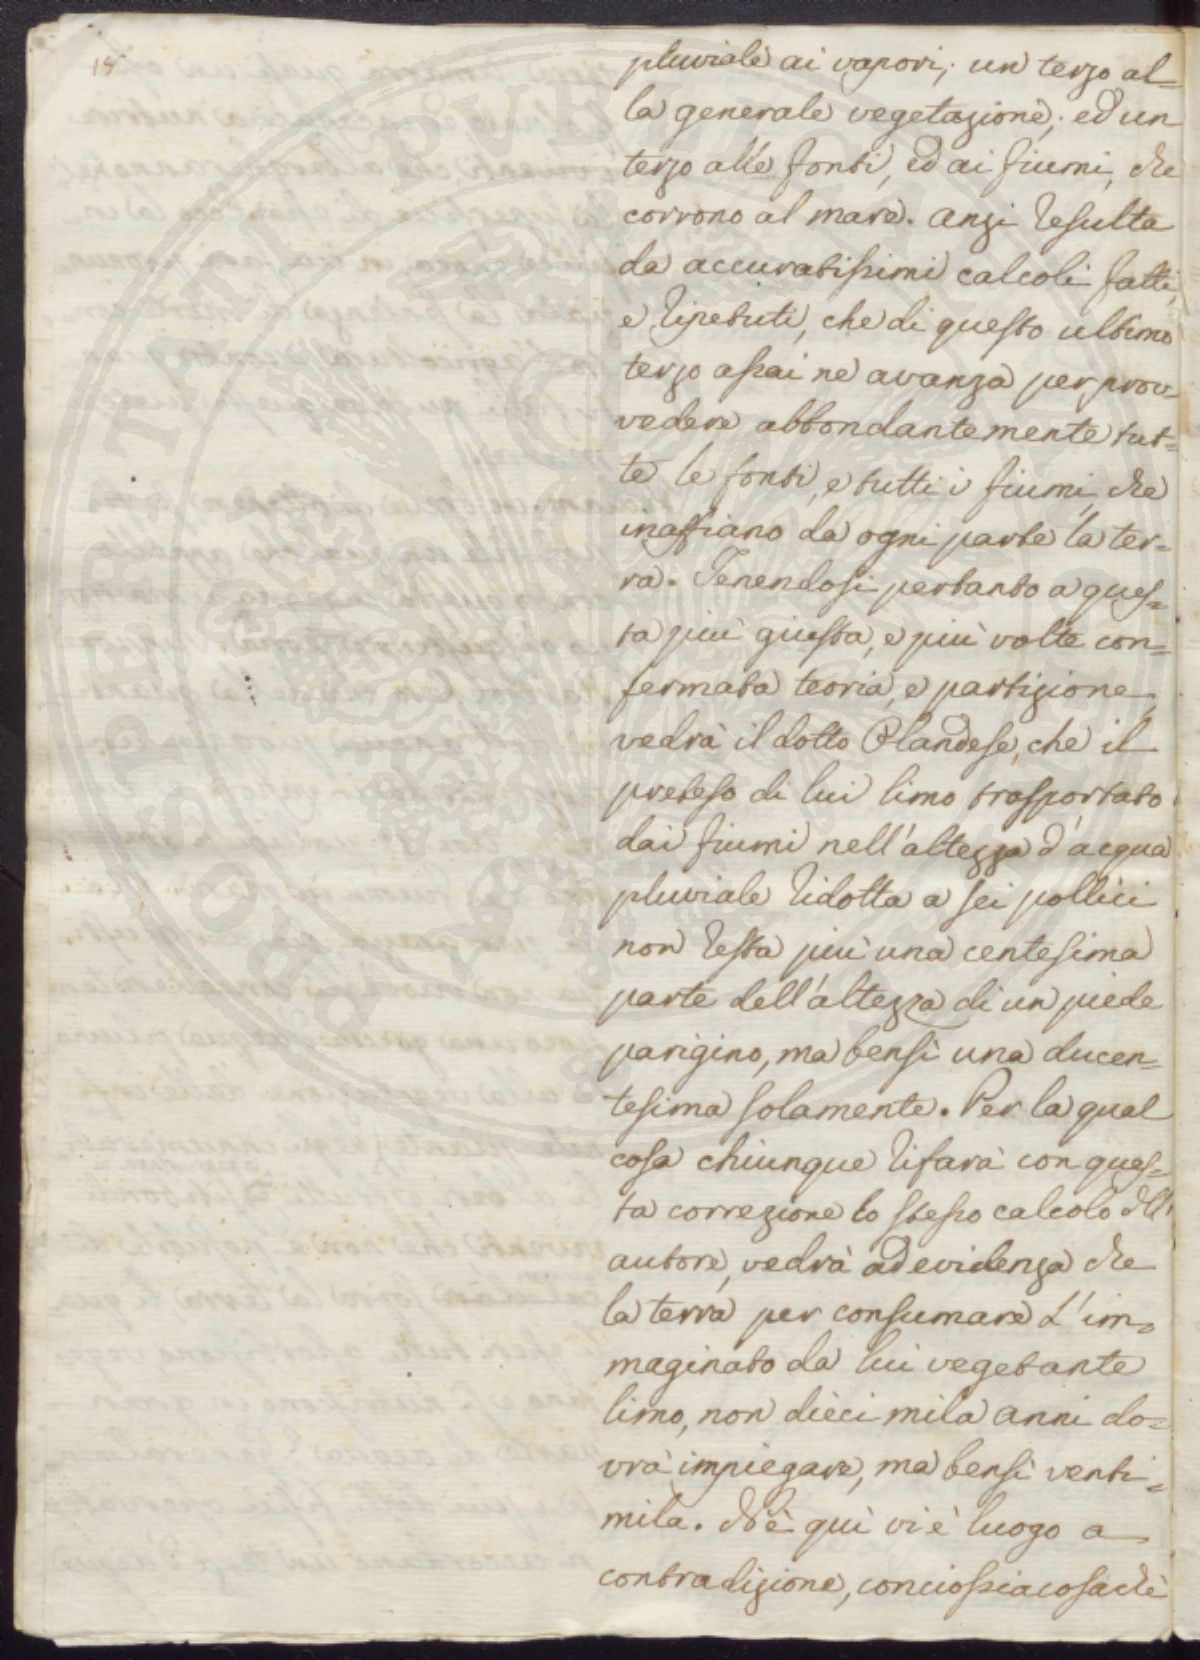 18
pluviale ai vapori; un terzo al-
la generale vegetazione; ed un
terzo alle fonti, ed ai fiumi, che
corrono al mare. anzi resulta
da accuratissimi calcoli fatti,
e ripetuti, che di questo ultimo
terzo assai ne avanza per prov-
vedere abbondantemente tut=
te le fonti, e tutti i fiumi, che
inaffiano da ogni parte la ter=
ra. Tenendosi pertanto a ques=
ta piu giusta, e più volte con=
fermata teoria, e partizione,
vedrà il dotto Olandese, che il
preteso di lui limo trasportato
dai fiumi nell'altezza d'acqua
pluviale ridotta a sei pollici
non resta più una centesima
parte dell'altezza di un piede
parigino, ma bensì una ducen=
tesima solamente. Per la qual
cosa chiunque rifarà con ques=
ta correzione lo stesso calcolo dell'
autore, vedrà ad evidenza che
la terra per consumare l'im=
maginato da lui vegetante
limo, non dieci mila anni do=
vrà impiegare, ma bensì venti=
mila. Nè quì vi è luogo a
contradizione, conciossiacosachè
PROSPERITATI PUBLICAE